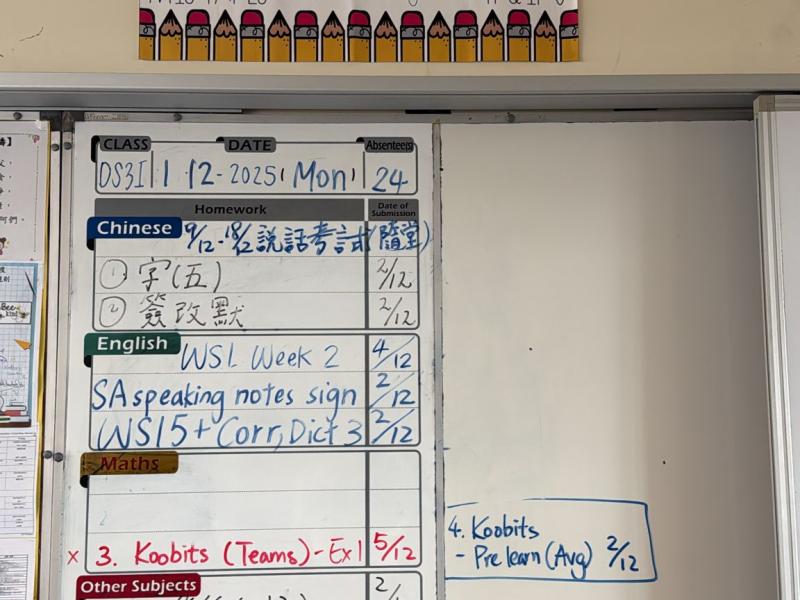 CLASS DATE Absentee(s)
DS3I 1 12-2025 Mon 24
Homework Date of Submission
Chinese 9/12-18/12 說話考試(隨堂)
① 字(五) 2/12
② 簽改默 2/12
English WSL Week 2 4/12
SA speaking notes sign 2/12
WS15+Corr, Dict 3 2/12
Maths
x 3. Koobits (Teams) - Ex1 5/12
4. Koobits
- Pre learn (Avg) 2/12
Other Subjects